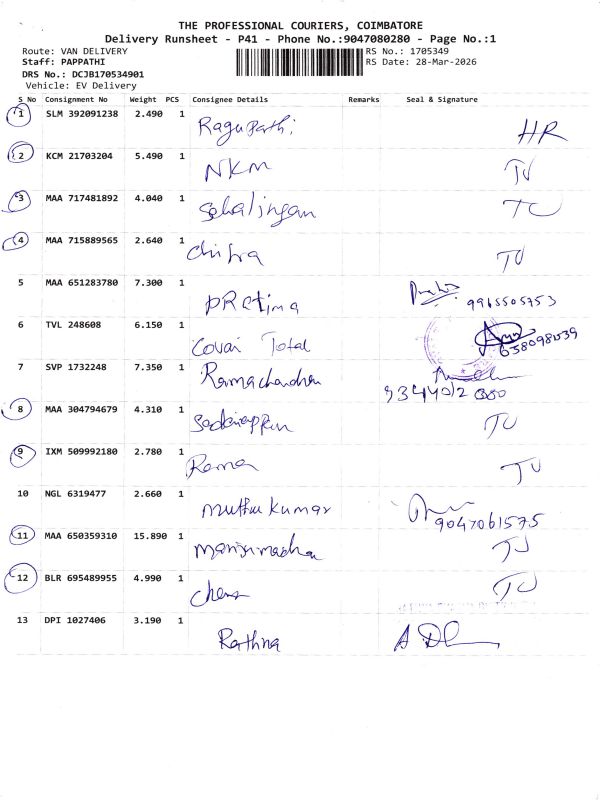 THE PROFESSIONAL COURIERS, COIMBATORE
Delivery Runsheet - P41 - Phone No.:9047080280 - Page No.:1
Route: VAN DELIVERY RS No.: 1705349
Staff: PAPPATHI RS Date: 28-Mar-2026
DRS No.: DCJB170534901
Vehicle: EV Delivery
S No Consignment No Weight PCS Consignee Details Remarks Seal & Signature
1 SLM 392091238 2.490 1 Ragupathi HR
2 KCM 21703204 5.490 1 NKM TU
3 MAA 717481892 4.040 1 TU
4 MAA 715889565 2.640 1 Chitra TU
5 MAA 651283780 7.300 1 PRetima
6 TVL 248608 6.150 1 Covai Total
7 SVP 1732248 7.350 1 Ramachandran
8 MAA 304794679 4.310 1 TU
9 IXM 509992180 2.780 1 Rama TU
10 NGL 6319477 2.660 1 muthu kumar 9047061575
11 MAA 650359310 15.890 1 TU
12 BLR 695489955 4.990 1 TU
13 DPI 1027406 3.190 1 Rathna